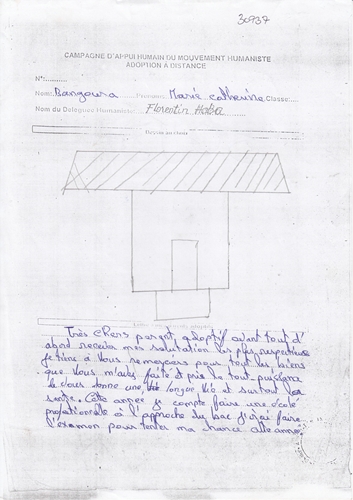 30737
CAMPAGNE D'APPUI HUMAIN DU MOUVEMENT HUMANISTE
ADOPTION A DISTANCE
N°:
Nom: Bangoura Prenom: Marie Catherine Classe:
Nom du Délégué Humaniste: Florentin Haba
Dessin au choix
Très chers parent adoptif avant tout d'
abord recevez mes salutation les plus respectueuse
je tiens à vous remerciers pour tout les biens
que vous m'avez faite et prie le tout-puissant
le vous donne une longue vie et surtout la
santé. Cette année je compte faire une école
professionnelle à l'approche du bac j'irai faire
l'examen pour tenter ma chance cette année